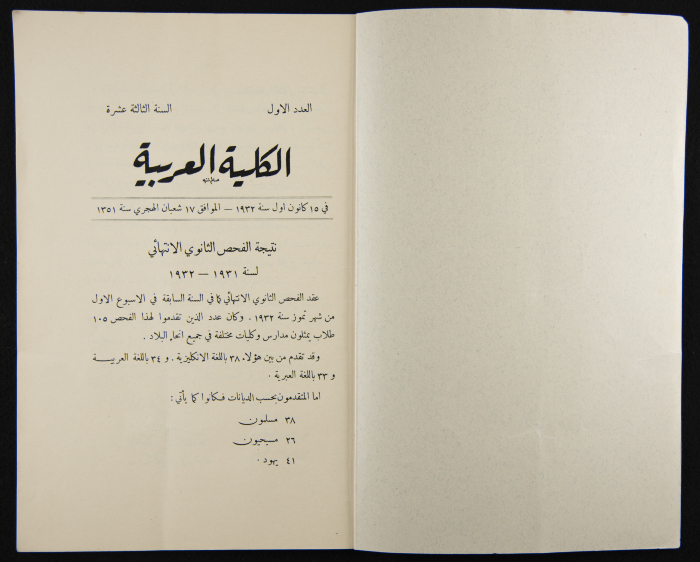 العدد الاول السنة الثالثة عشرة
الكلية العربية
في ١٥ كانون اول سنة ١٩٣٢ — الموافق ١٧ شعبان الهجري سنة ١٣٥١
نتيجة الفحص الثانوي الانتهائي
لسنة ١٩٣١ — ١٩٣٢
عقد الفحص الثانوي الانتهائي كما في السنة السابقة في الاسبوع الاول
من شهر تموز سنة ١٩٣٢ . وكان عدد الذين تقدموا لهذا الفحص ١٠٥
طلاب يمثلون مدارس وكليات مختلفة في جميع انحاء البلاد .
وقد تقدم من بين هؤلاء ٣٨ باللغة الانكليزية . و ٣٤ باللغة العربيـــة
و ٣٣ باللغة العبرية .
اما المتقدمون بحسب الديانات فكانوا كما يأتي :
٣٨ مسلمون
٢٦ مسيحيون
٤١ يهود .